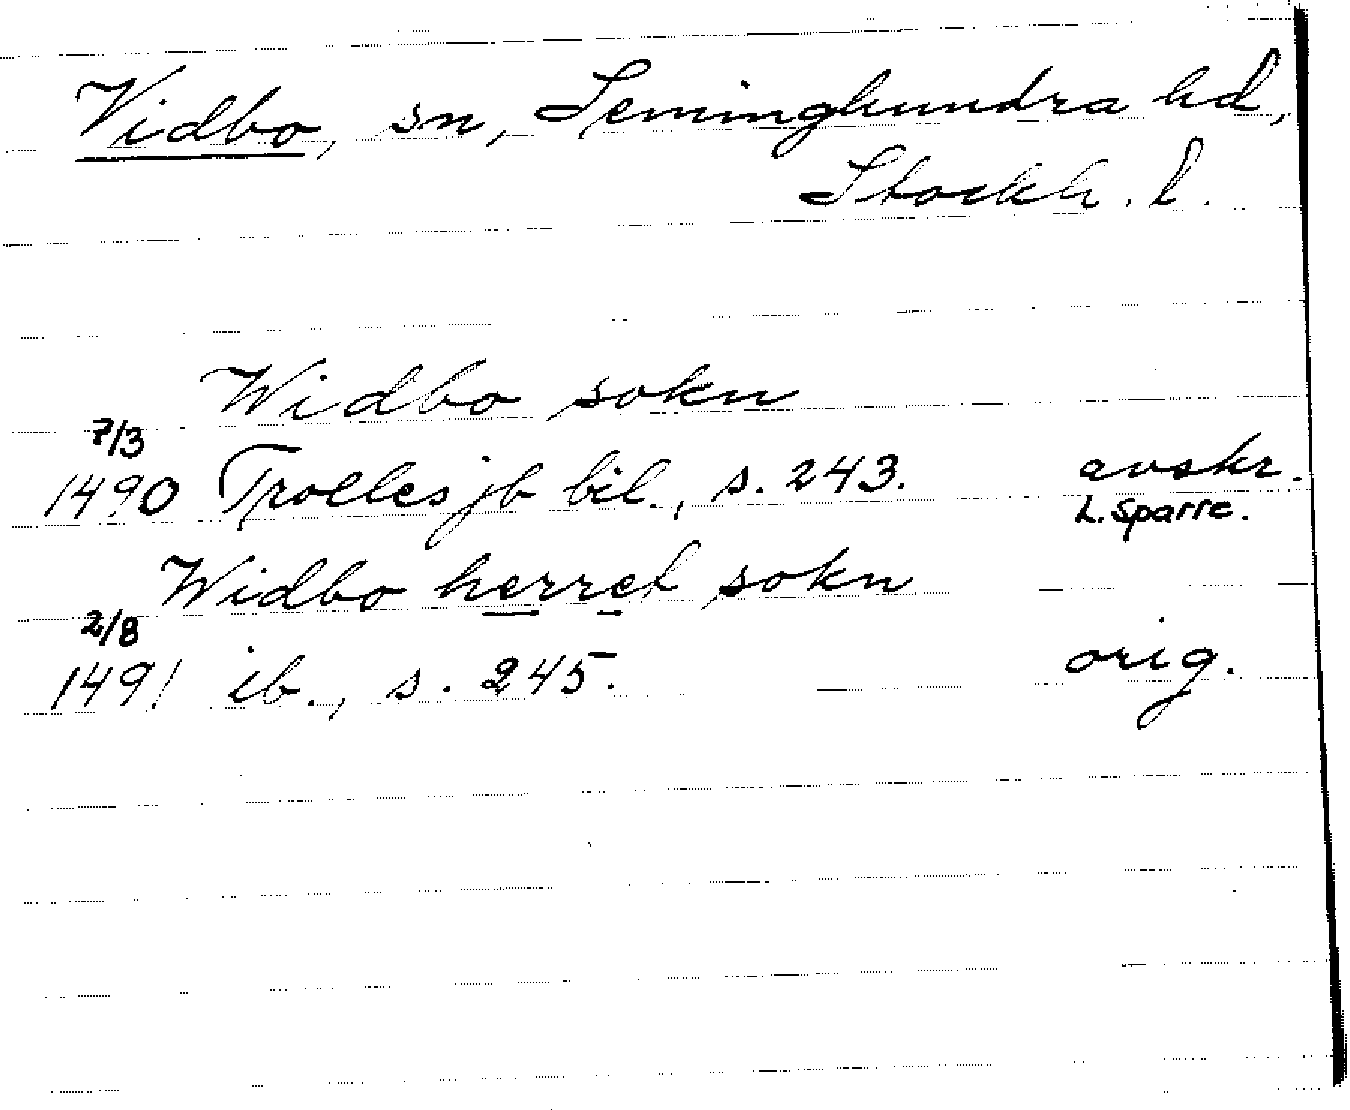 Vidbo, sn, Seminghundra hd,
Stockh. l.
Widbo sokn
7/3
1490 Trolles jb bil., s. 243. avskr.
L. Sparre.
Widbo herret sokn
2/8
1491 ib., s. 245. orig.